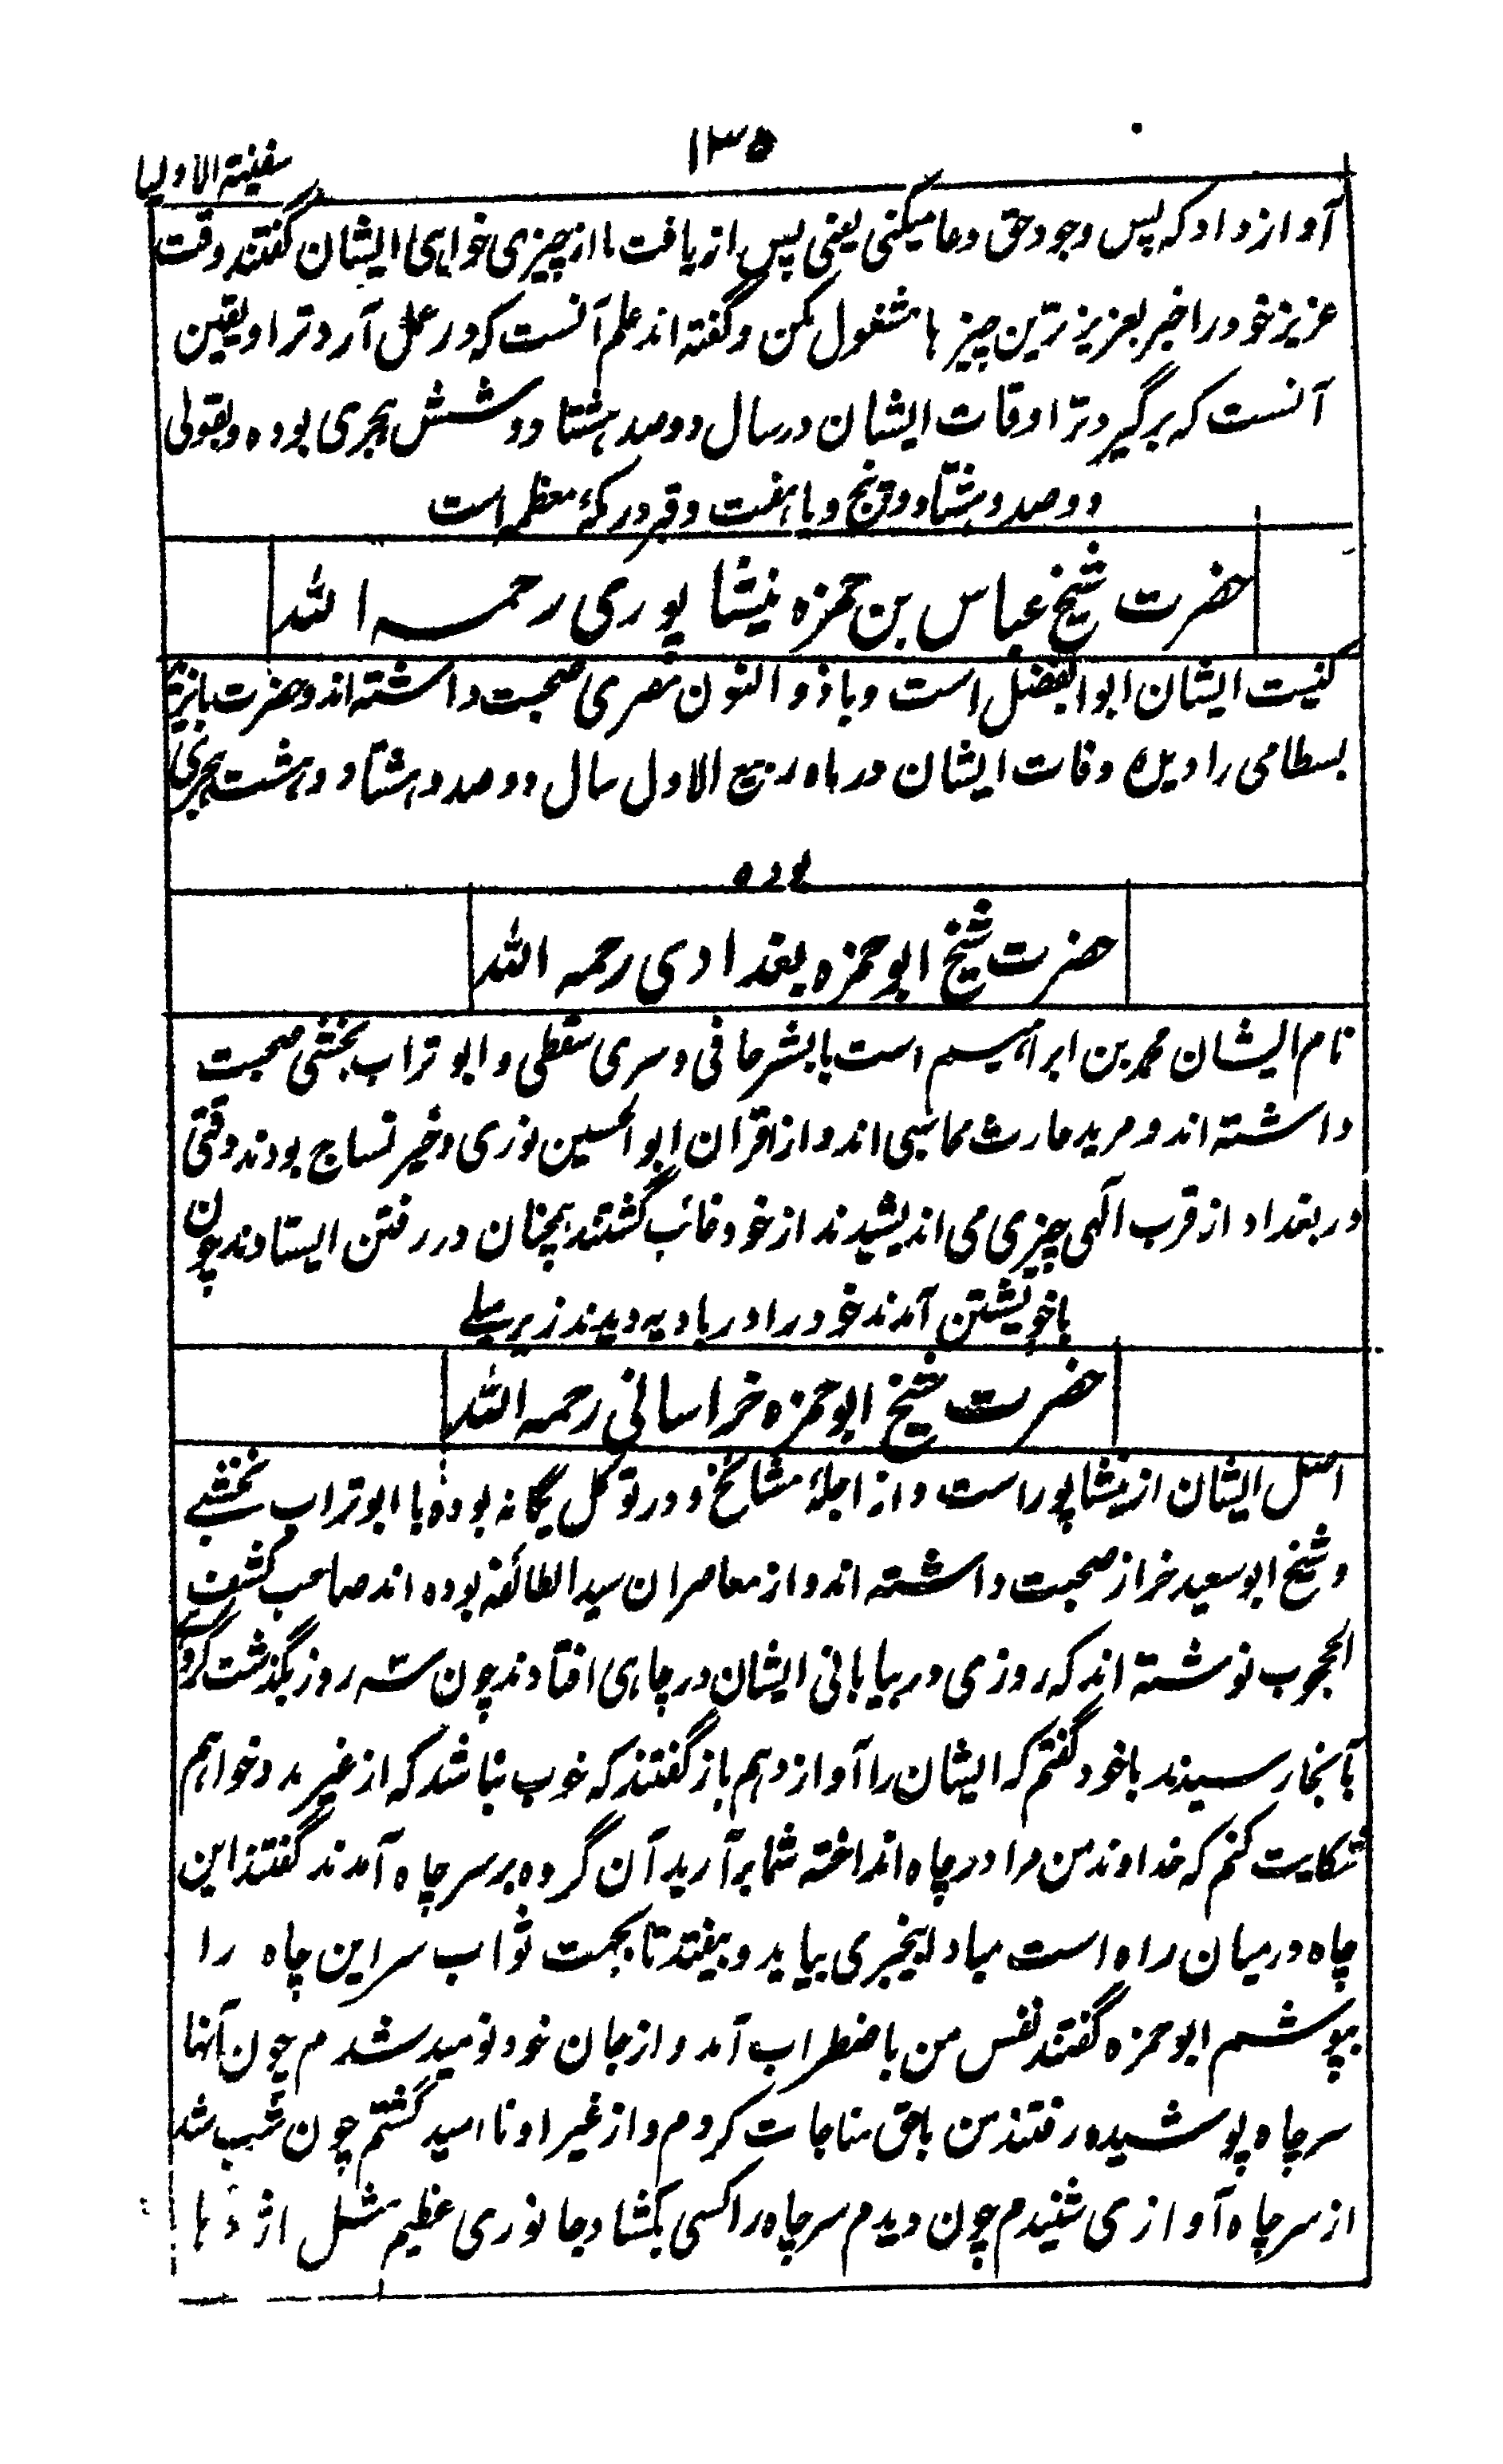 ۱۳۵
سفینة الاولیا
آواز داد که پس وجود حق دعا میکنی یعنی پس از یافت ما از چیزی خواهی ایشان گفتند وقت
عزیز خود را خبر بعزیز ترین چیز ها مشغول مکن و گفته اند علم آنست که در عمل آرد ترا و یقین
آنست که برگیرد ترا وفات ایشان در سال دو صد هشتاد و شش هجری بوده و بقولی
دو صد و هشتاد و پنج و یا هفت و قبر در مکهٔ معظمه است
حضرت شیخ عباس بن حمزه نیشاپوری رحمه الله
کنیت ایشان ابو الفضل است و با ذو النون مصری صحبت داشته اند و حضرت بایزید
بسطامی را دیده وفات ایشان در ماه ربیع الاول سال دو صد و هشتاد و هشت هجری
بوده
حضرت شیخ ابو حمزه بغدادی رحمه الله
نام ایشان محمد بن ابراهیم است با بشر حافی و سری سقطی و ابو تراب نخشبی صحبت
داشته اند و مرید حارث محاسبی اند و از اقران ابو الحسین نوری و خیر نساج بودند وقتی
در بغداد از قرب الهی چیزی می اندیشیدند از خود غائب گشتند همچنان در رفتن ایستادند چون
باخویشتن آمدند خود را در بادیه دیدند زیر میلے
حضرت شیخ ابو حمزه خراسانی رحمه الله
اصل ایشان از نیشاپور است و از اجلهٔ مشائخ و در توکل یگانه بوده با ابو تراب نخشبے
و شیخ ابو سعید خراز صحبت داشته اند و از معاصران سید الطائفه بوده اند صاحب کشف
المحجوب نوشته اند که روزی در بیابانی ایشان در چاهی افتادند چون سه روز بگذشت گروهے
بآنجا رسیدند با خود گفتم که ایشان را آواز دهم باز گفتند که خوب نباشد که از غیر مدد خواهم
شکایت کنم که خداوند من مرا در چاه انداخته شما برآرید آن گروه بر سر چاه آمدند گفتند این
چاه در میان راه است مبادا بیخبری بیاید و بیفتد تا بجهت ثواب سر این چاه را
بپوشم ابو حمزه گفتند نفس من باضطراب آمد و از جان خود نومید شدم چون آنها
سر چاه پوشیده رفتند من باحق مناجات کردم و از غیر او نا امید گشتم چون شب شد
از سر چاه آوازی شنیدم چون دیدم سر چاه را کسی بکشاد جانوری عظیم مثل اژدها